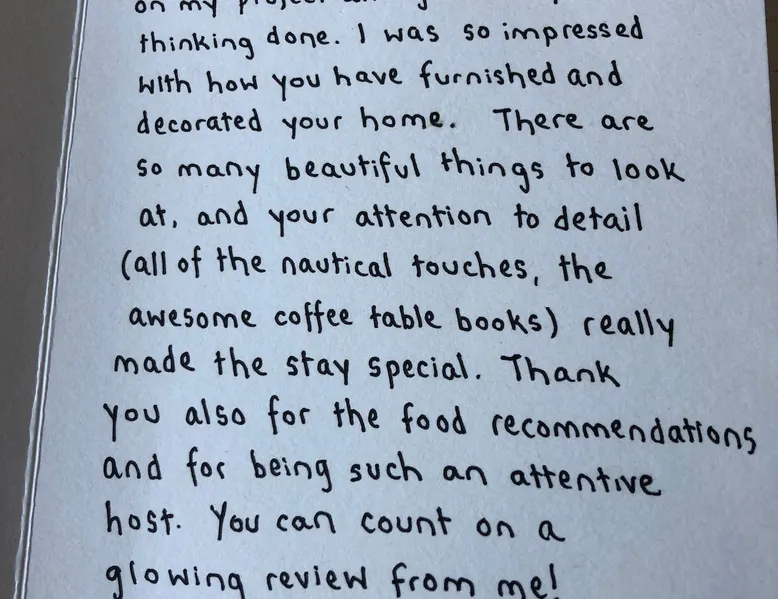 on my project
thinking done. I was so impressed
with how you have furnished and
decorated your home. There are
so many beautiful things to look
at, and your attention to detail
(all of the nautical touches, the
awesome coffee table books) really
made the stay special. Thank
you also for the food recommendations
and for being such an attentive
host. You can count on a
glowing review from me!